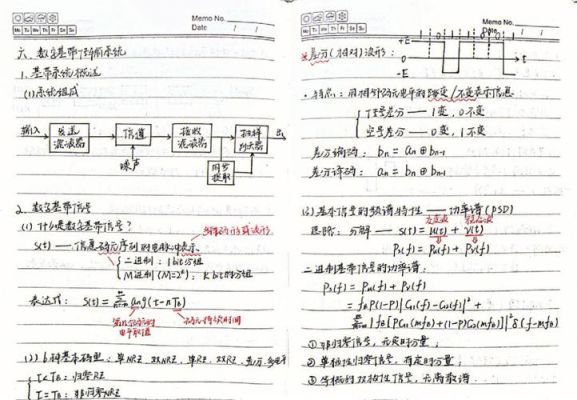 Memo No.
Mo Tu We Th Fr Sa Su
Date / /
六、数字基带传输系统
1. 基带系统概述
(1) 系统组成
输入 → 发送滤波器 → 信道 → 接收滤波器 → 抽样判决器
噪声
同步提取
2. 数字基带信号
(1) 什么是数字基带信号?
S(t) —— 信息码元序列的电脉冲表示
二进制: 1bit分组
M进制 (M=2^k): K bit的分组
表达式: S(t) = Σ an g(t-nTB)
第n个码元的电平取值
码元持续时间
6种基本码型: 单NRZ, 双NRZ, 单RZ, 双RZ, 差分, 多电平
τ<TB: 归零RZ
τ=TB: 非归零NRZ
Memo No.
Mo Tu We Th Fr Sa Su
Date / /
差分(相对)波形:
+E
0
-E
t
特点: 用相邻码元电平的跳变/不变表示信息
传号差分 —— 1变, 0不变
空号差分 —— 0变, 1不变
差分编码: bn = an ⊕ bn-1
差分译码: an = bn ⊕ bn-1
(2) 基本信号的频谱特性 —— 功率谱(PSD)
交变波 稳态波
思路: 分解 —— S(t) = u(t) + v(t)
Ps(f) = Pu(f) + Pv(f)
二进制基带信号的功率谱:
Ps(f) = Pu(f) + Pv(f)
= fB P(1-P)|G1(f)-G2(f)|² +
Σ |fB[PG1(mfB)+(1-P)G2(mfB)]|² δ(f-mfB)
① 非归零信号, 无定时分量;
② 单极性归零信号, 有定时分量;
③ 等概的双极性信号, 无离散谱.